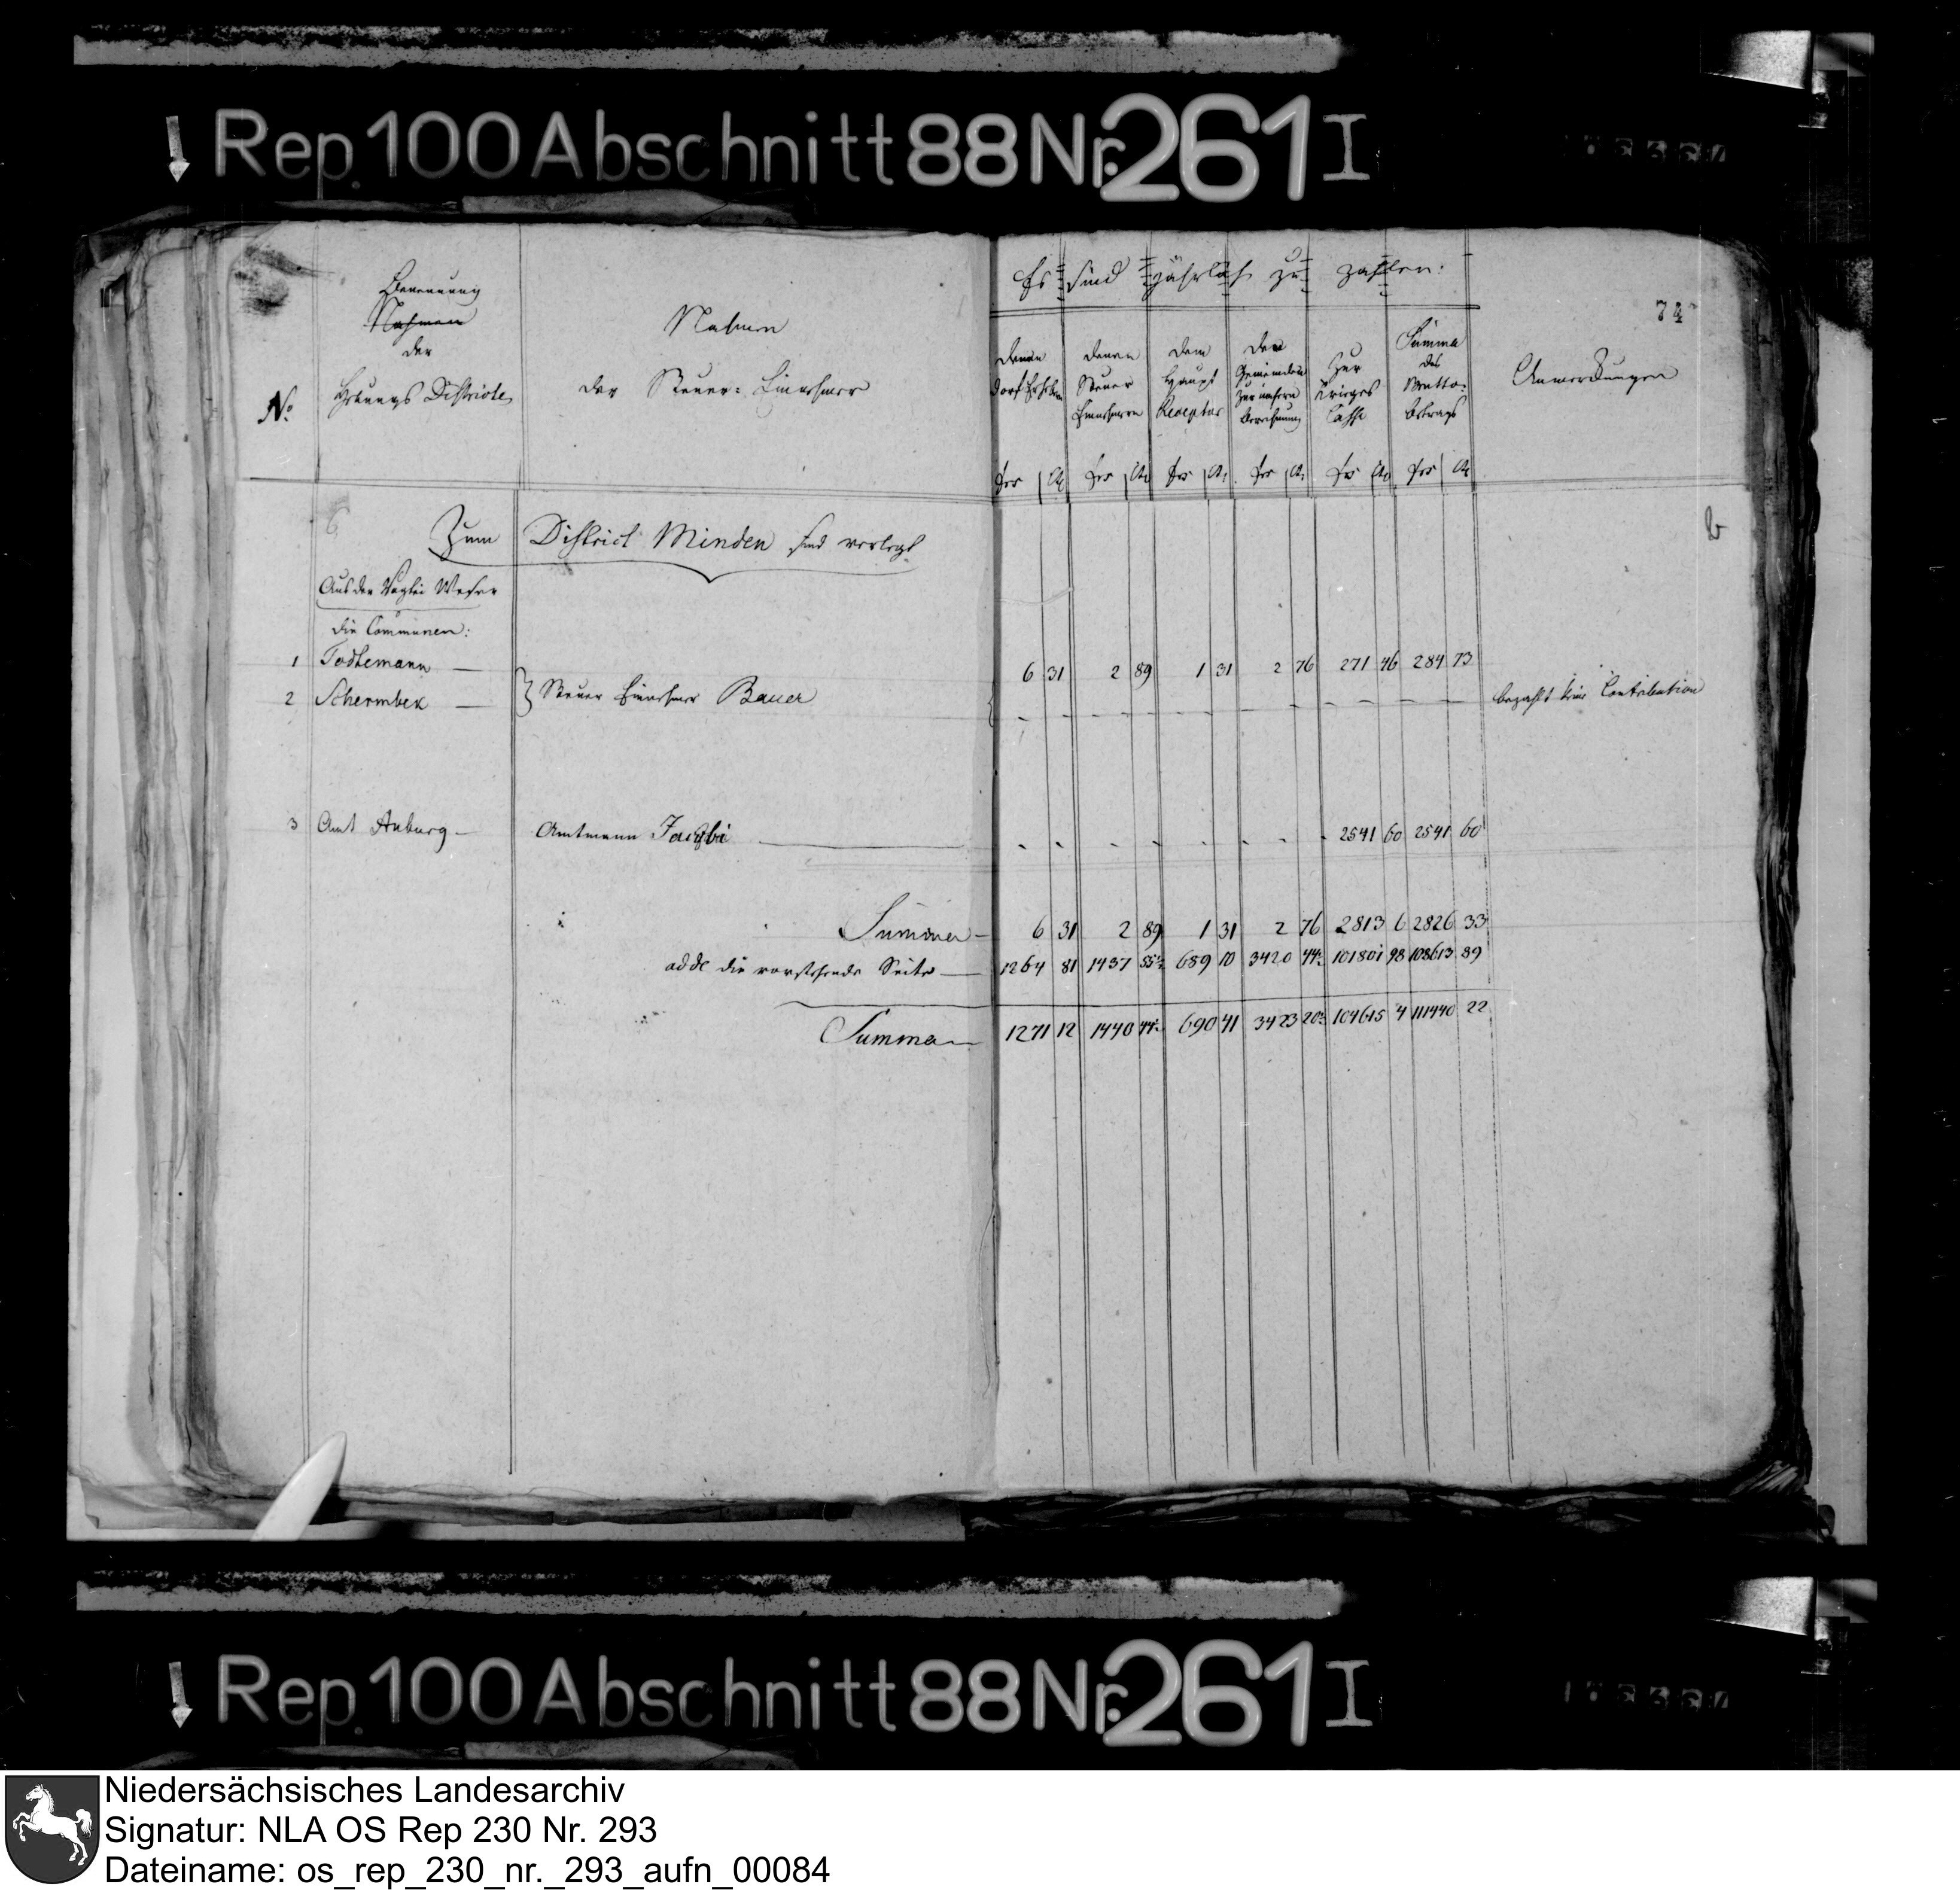 Rep. 100 Abschnitt 88 Nr. 261 I
74
Benennung
Nahmen
der
Hebungs Districte
No.
Nahmen
der Steuer-Einnehmer
Es sind jährlich zu zahlen:
denen
Dorf
denen
Steuer
Einnehmern
dem
Haupt
Receptor
den
Gemeinden
zur
Berechnung
Zur
Krieges
Casse
Summa
des
Betrags
Anmerkungen
frs | Ct frs | Ct frs | Ct frs | Ct frs | Ct frs | Ct
b
Zum District Minden sind verlegt
Aus der Vogtei Weser
die Communen:
1 Todtemann — 6 31 2 89 1 31 2 76 271 46 284 73
2 Schermbek — } Steuer Einnehmer Bauer - - - - - - - - - - - - bezahlt keine Contribution
3 Amt Auburg — Amtmann Jacobi — - - - - - - - - 2541 60 2541 60
Summa — 6 31 2 89 1 31 2 76 2813 6 2826 33
adde die vorstehende Seite — 1264 81 1437 55½ 689 10 3420 44½ 101801 98 108613 89
Summa — 1271 12 1440 44½ 690 41 3423 20½ 104615 4 111440 22
Rep. 100 Abschnitt 88 Nr. 261 I
Niedersächsisches Landesarchiv
Signatur: NLA OS Rep 230 Nr. 293
Dateiname: os_rep_230_nr._293_aufn_00084